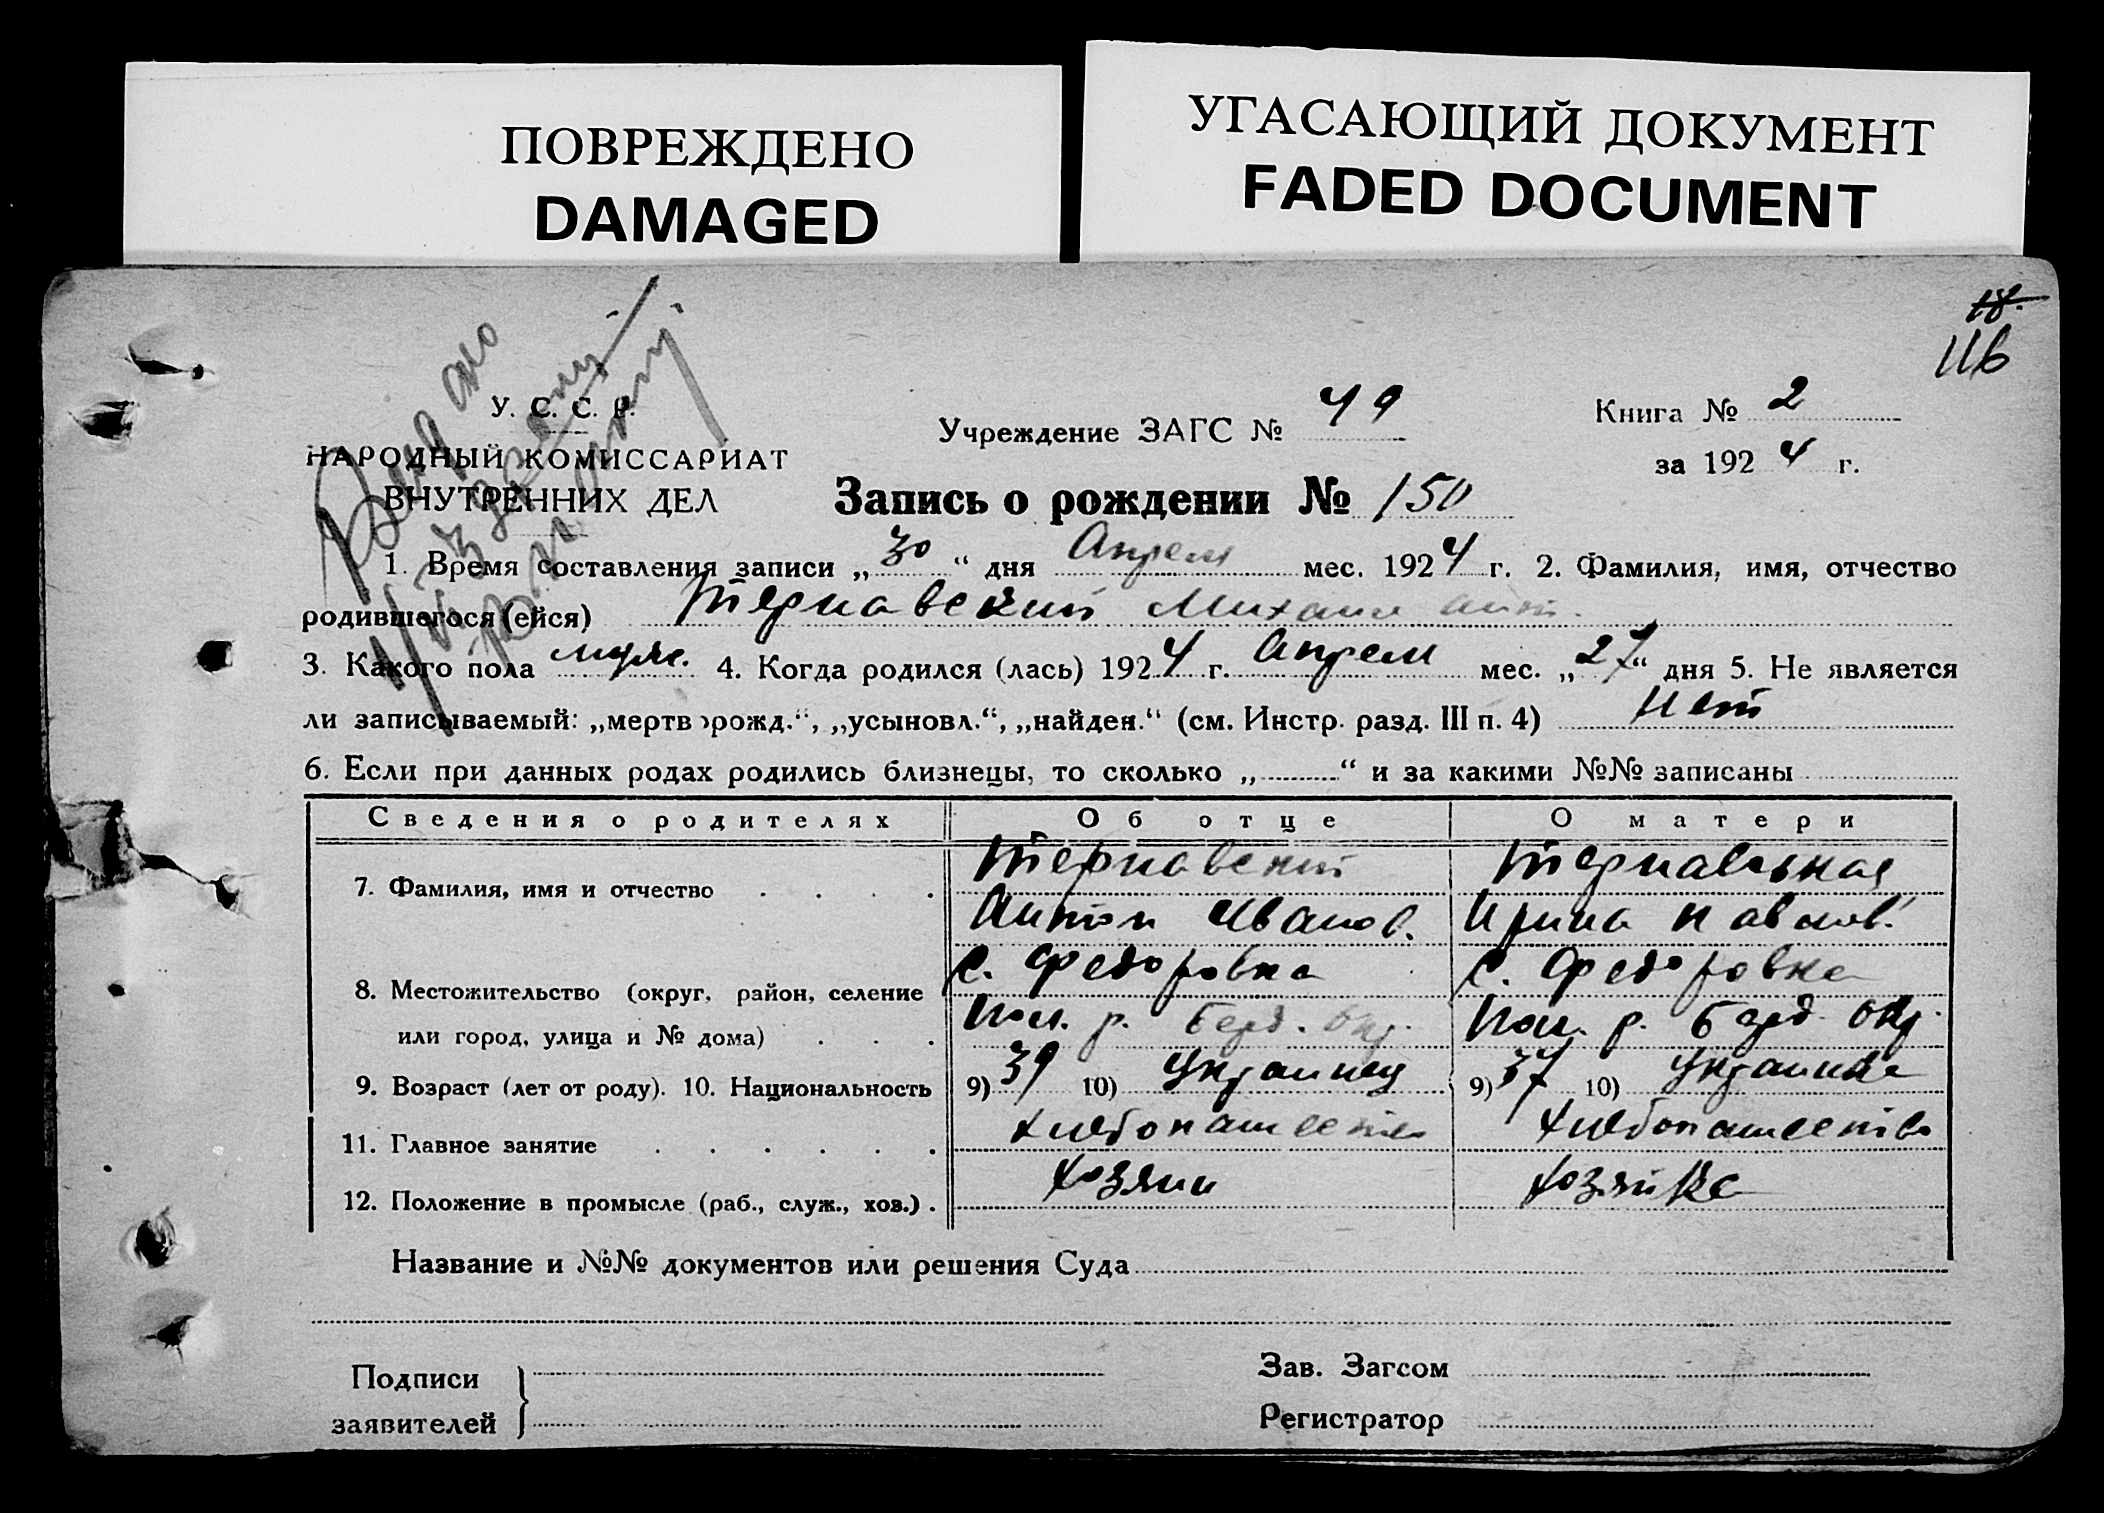 ПОВРЕЖДЕНО
DAMAGED
УГАСАЮЩИЙ ДОКУМЕНТ
FADED DOCUMENT
18.
116
У. С. С. Р.
НАРОДНЫЙ КОМИССАРИАТ
ВНУТРЕННИХ ДЕЛ
Учреждение ЗАГС № 49
Книга № 2
за 1924 г.
Запись о рождении № 150
1. Время составления записи „30“ дня Апреля мес. 1924 г. 2. Фамилия, имя, отчество
родившегося (ейся) Терновский Михаил Ант.
3. Какого пола муж. 4. Когда родился (лась) 1924 г. Апреля мес. „27“ дня 5. Не является
ли записываемый: „мертворожд.“, „усыновл.“, „найден.“ (см. Инстр. разд. III п. 4) Нет
6. Если при данных родах родились близнецы, то сколько „ “ и за какими №№ записаны
Сведения о родителях Об отце О матери
7. Фамилия, имя и отчество Терновский Терновская
Антон Иванов. Ирина Павлов.
с. Федоровка с. Федоровка
8. Местожительство (округ, район, селение р. Берд. Окр. р. Берд. Окр.
или город, улица и № дома)
9. Возраст (лет от роду). 10. Национальность 9) 39 10) Украинец 9) 37 10) Украинка
11. Главное занятие хлебопашество хлебопашество
12. Положение в промысле (раб., служ., хоз.) хозяин хозяйка
Название и №№ документов или решения Суда
Подписи
заявителей
Зав. Загсом
Регистратор